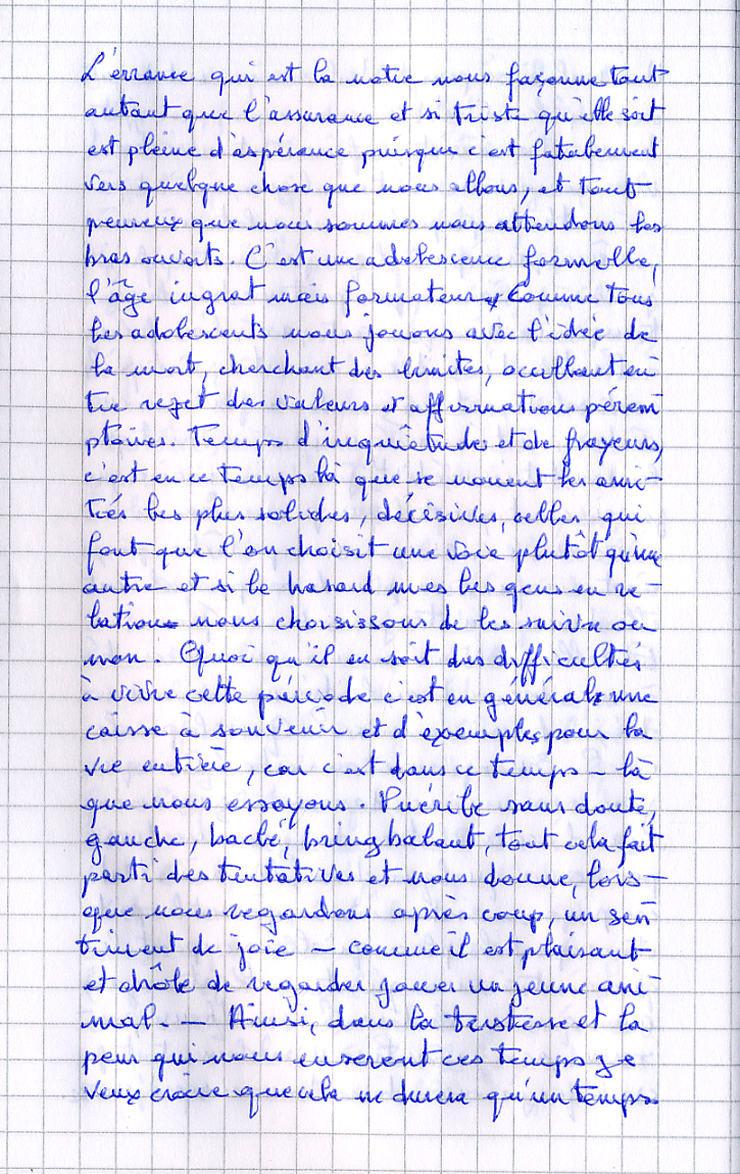 L'errance qui est la notre nous façonne tout
autant que l'assurance et si triste qu'elle soit
est pleine d'espérance puisque c'est fatalement
vers quelque chose que nous allons, et tout
peureux que nous sommes nous attendons les
bras ouverts. C'est une adolescence formelle,
l'âge ingrat mais formateur, comme tous
les adolescents nous jouons avec l'idée de
la mort, cherchant des limites, oscillant en
tre rejet des valeurs et affirmations péremp
ptoires. Temps d'inquiétudes et de frayeurs,
c'est en ce temps là que se nouent les ami-
tiés les plus solides, décisives, celles qui
font que l'on choisit une voie plutôt qu'une
autre et si le hasard mes les gens en re-
lation nous choisissons de les suivre ou
non. Quoi qu'il en soit des difficultés
à vivre cette période c'est en général une
caisse à souvenir et d'exemples pour la
vie entière, car c'est dans ce temps-là
que nous essayons. Puérile sans doute,
gauche, baclé, bringbalant, tout cela fait
parti des tentatives et nous donne, lors-
que nous regardons après coup, un sen
timent de joie — comme il est plaisant
et drôle de regarder jouer un jeune ani-
mal. — Ainsi, dans la tristesse et la
peur qui nous enserent ces temps je
veux croire que cela ne durera qu'un temps